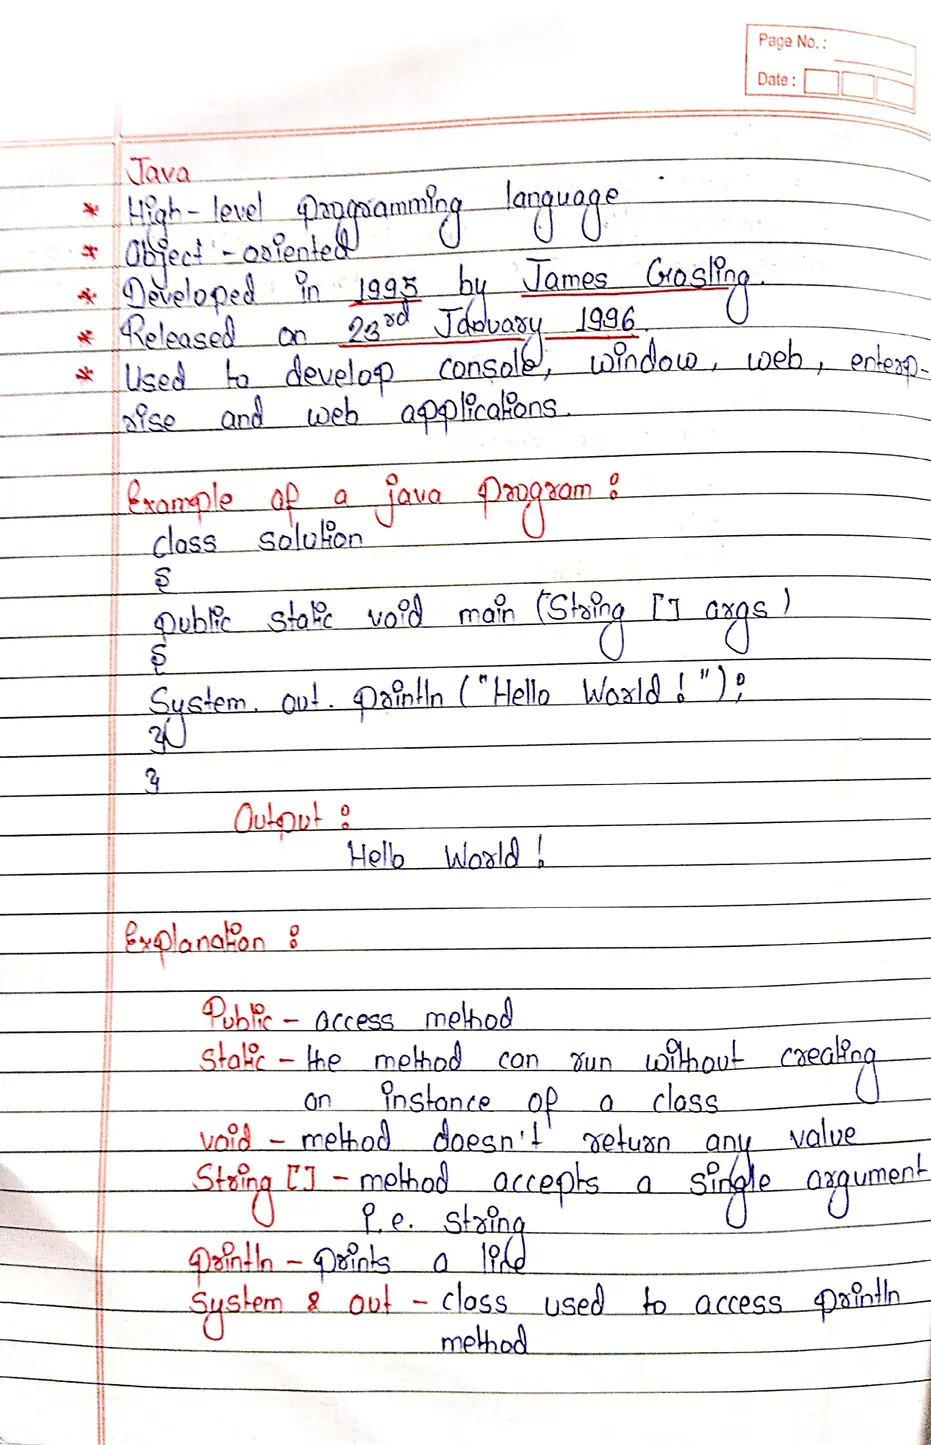 Page No. :
Date :
Java
* High-level programming language
* Object-oriented
* Developed in 1995 by James Gosling.
* Released on 23rd January 1996.
* Used to develop console, window, web, enterp-
rise and web applications.
Example of a java program :
class solution
{
public static void main (String [] args)
{
System. out. println ("Hello World!");
}
}
Output :
Hello World!
Explanation :
Public - access method
Static - the method can run without creating
an instance of a class
void - method doesn't return any value
String [] - method accepts a single argument
i.e. string
println - prints a line
System & out - class used to access println
method